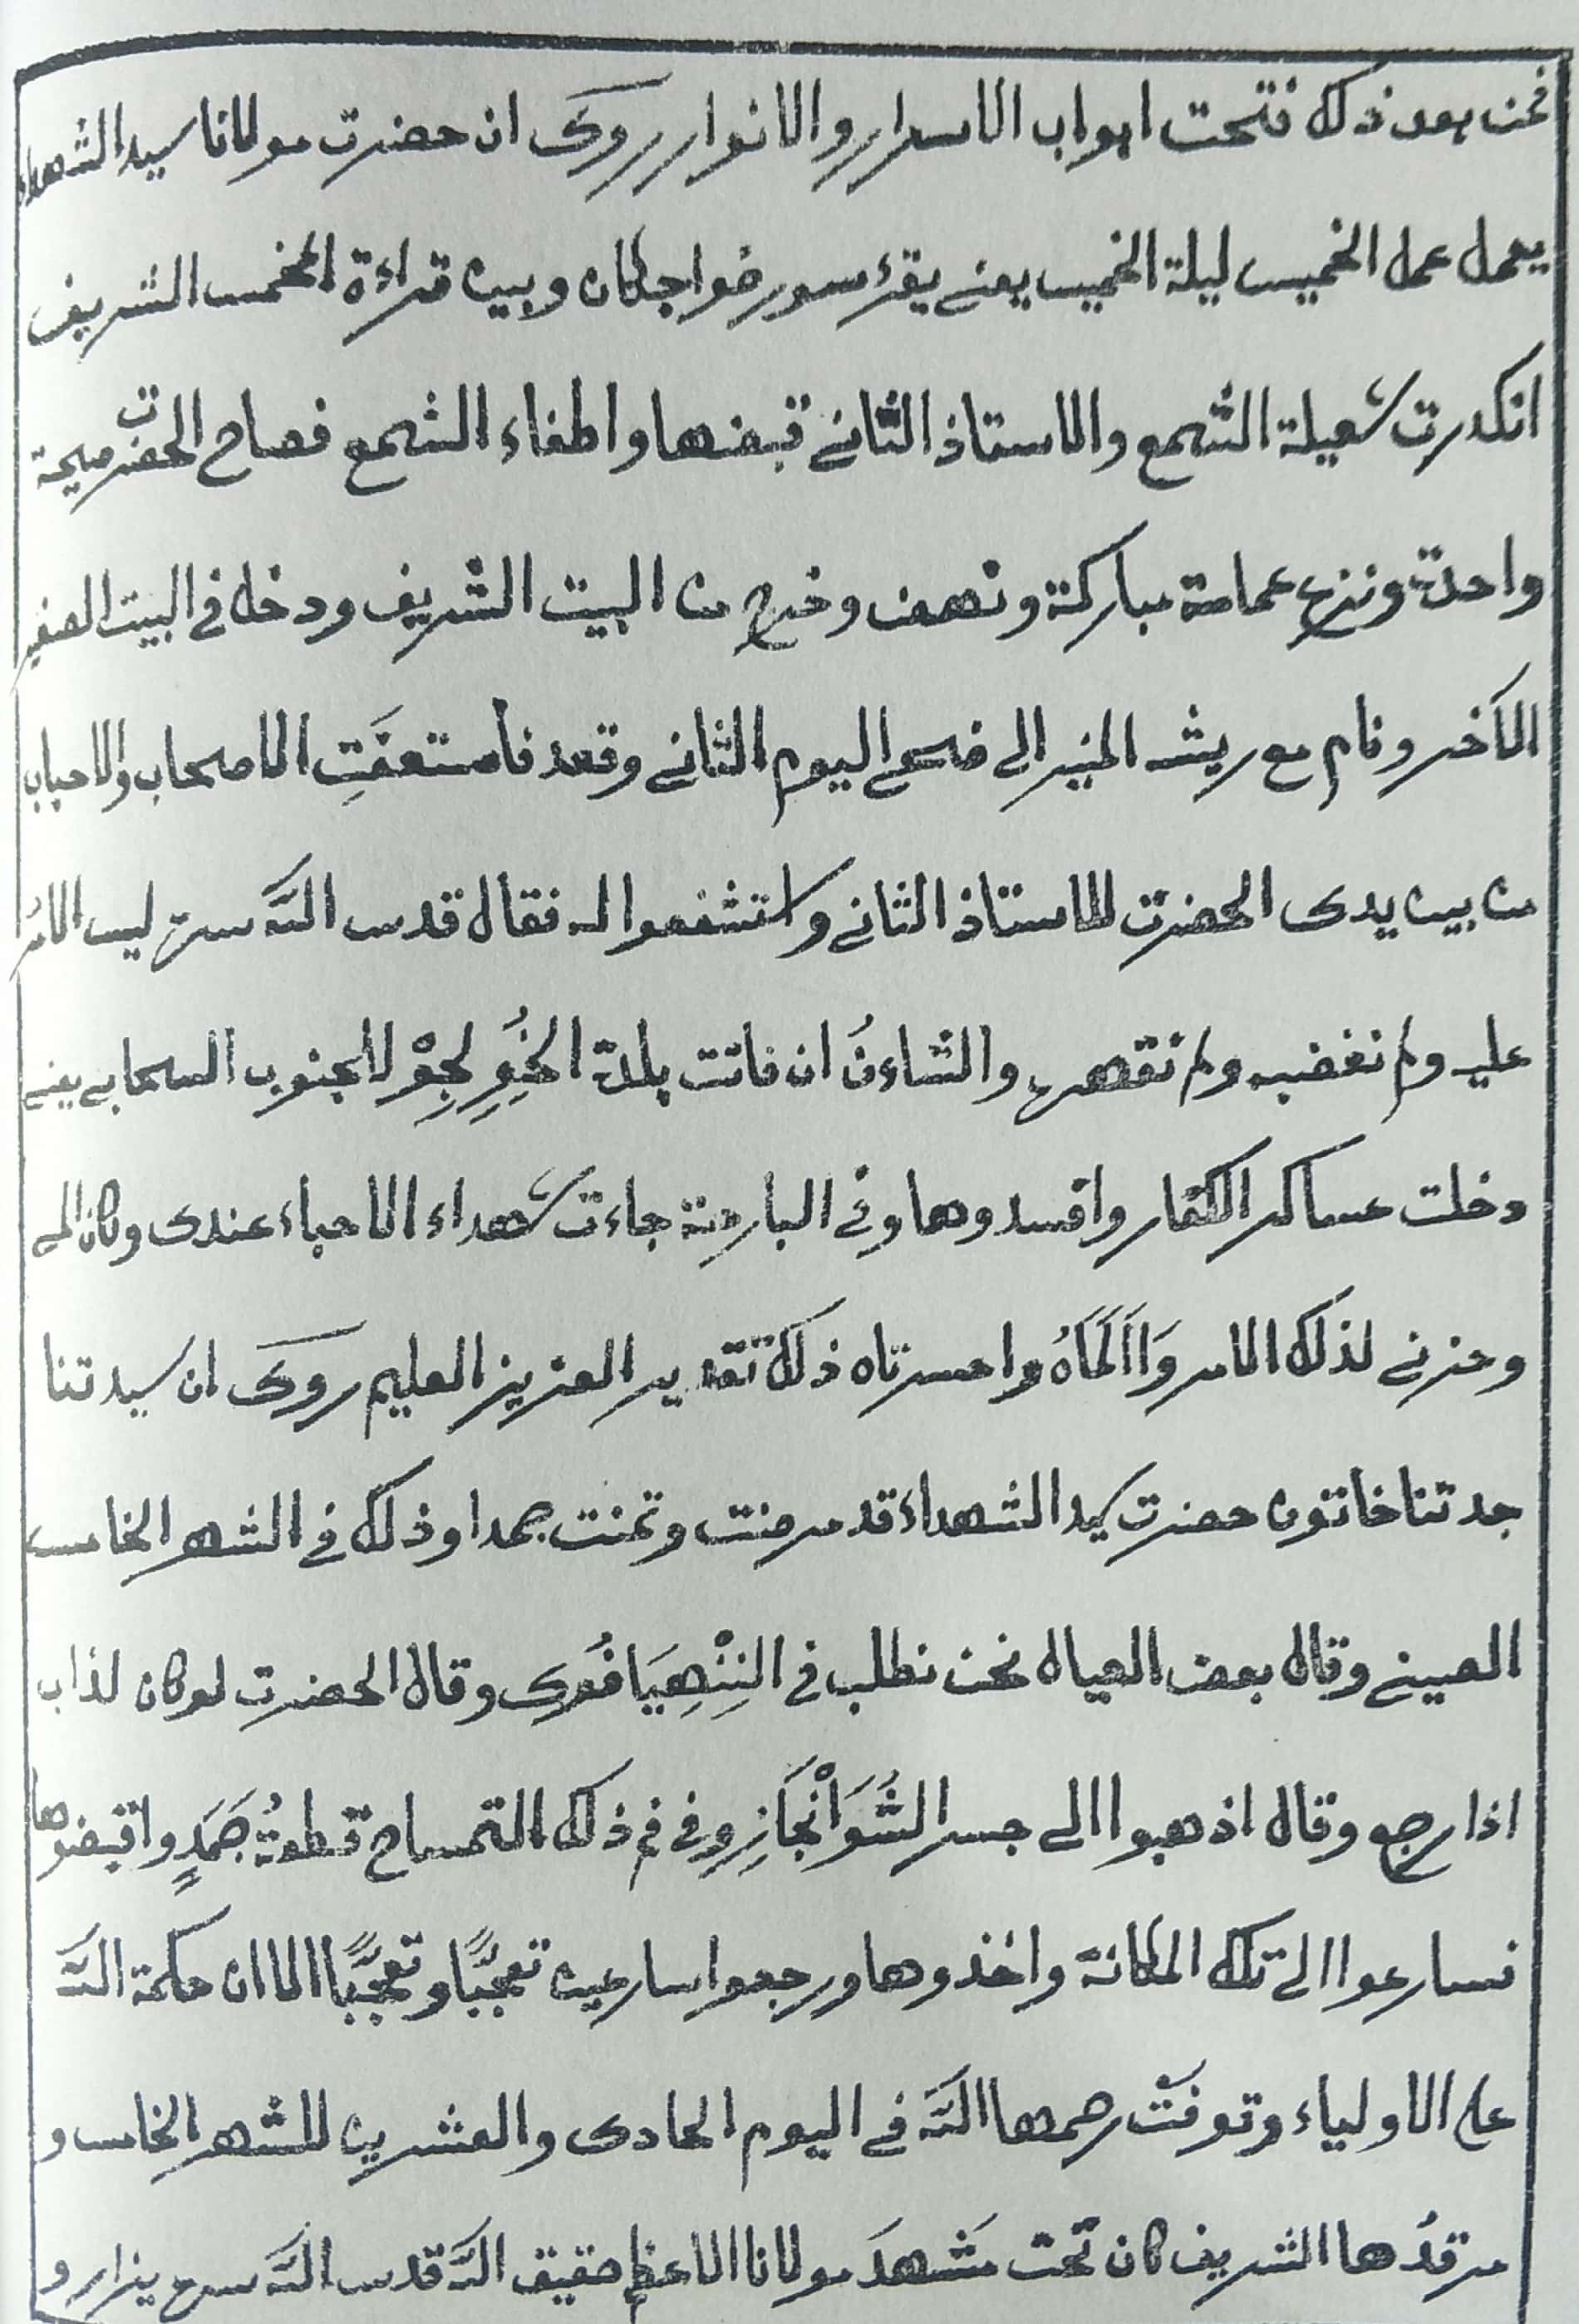 نحن بعد ذلك فتحت ابواب الاسرار والانوار روى ان حضرت مولانا سيد الشهداء
يعمل عمل الخميس ليلة الخميس يعنے يقرء سور خواجكان وبين قراءة المخمس الشريف
انكدرت شعيلة الشمع والاستاذ الثانے قبضها واطفاء الشمع فصاح الحضرت صيحة
واحدة ونزع عمامة مباركة ونهض وخرج من البيت الشريف ودخل في البيت الصغير
الآخر ونام مع ريشه المنير الى ضحى اليوم الثانے وقعد فاستعفَتِ الاصحاب والاحباب
من بين يدى الحضرت للاستاذ الثانے واستشفعوا له فقال قدس اللّه سره ليس الامر
عليه ولم نغضبه ولم نقهره والشاءنُ ان فاتت بلدة الخُوِلِجِوْ للجنوب السحابے يعنے
دخلت عساكر الكفار وافسدوها وفي البارحة جاءت شهداء الاحباء عندى وكان الى
وحزنے لذلك الامر وَااَلَمَاهُ واحسرتاه ذلك تقدير العزيز العليم روى ان سيدتنا
جدتنا خاتون حضرت سيد الشهداء قد مرضت وتمنت جمدا وذلك في الشهر الخامس
الصينے وقال بعض العيال نحن نطلب في النِنْهِيَافُوى وقال الحضرت لو كان لذاب
اذا رجع وقال اذهبوا الے جسر الشُوَانْجَازِ وفي فم ذلك التمساح قطعةُ جَمَدٍ واقبضوها
فسارعوا الے تلك المكانة واخذوها ورجعوا سارعين تعجبًا وتعجبًا الا ان حكمة اللّه
على الاولياء وتوفَتْ رحمها اللّه في اليوم الحادى والعشرين للشهر الخامس و
مرقدُها الشريف كان تحت مَشهدَ مولانا الاعظم حقيق اللّه قدس اللّه سره يزار و